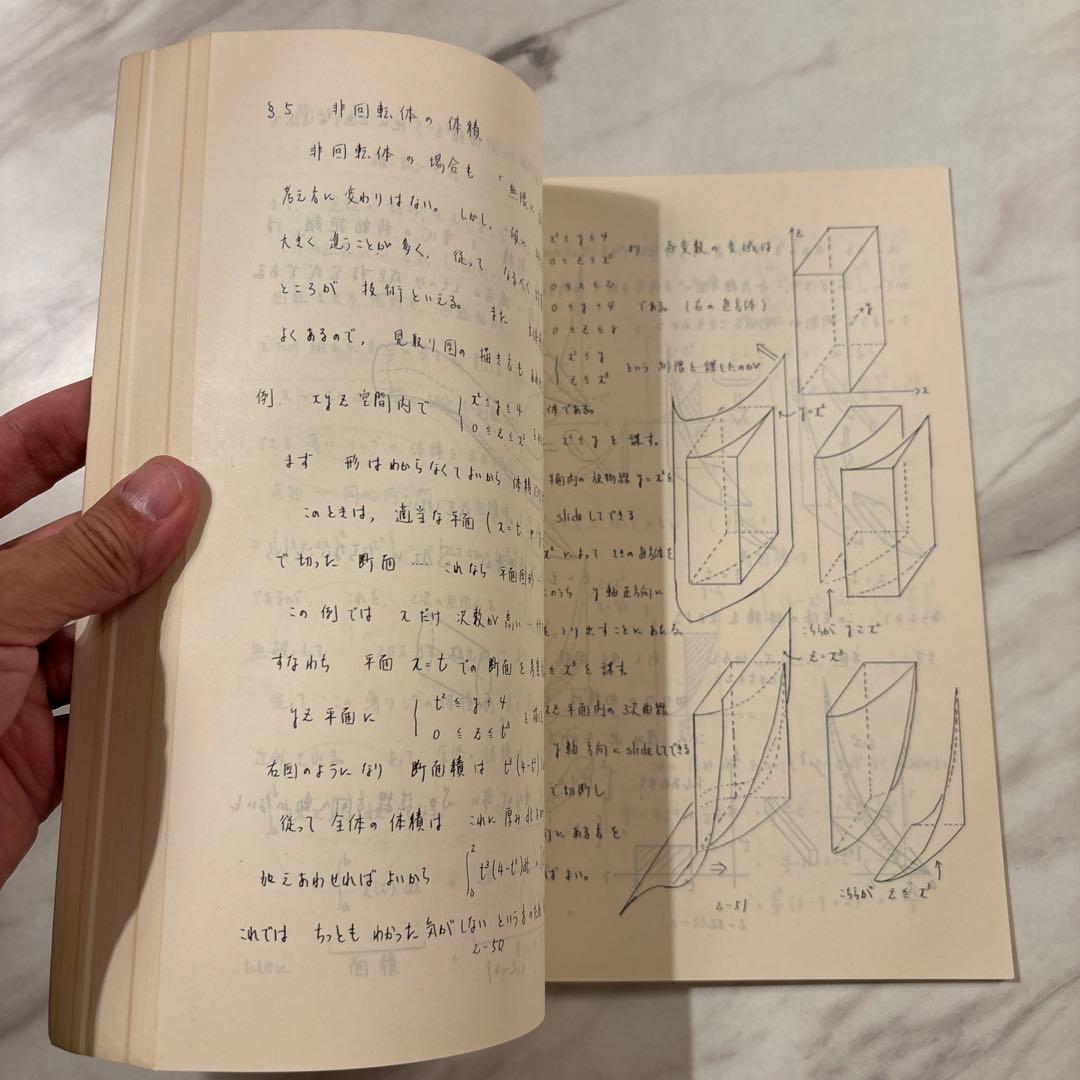 §5 非回転体の体積
非回転体の場合も 「無限に
考え方に変わりはない。しかし、一般に
大きく違うことが多く、従って なるべく
ところが 技術といえる。 また
よくあるので、 見取り図の描き方も
例. xyz空間内で { x²≦y≦4
0≦z≦x³
まず 形はわからなくてよいから 体積
このときは、適当な平面 (x=t,
で切った断面 …… これなら 平面図形
この例では xだけ 次数が高い
すなわち 平面 x=t での断面を
yz平面に { t²≦y≦4
0≦z≦t³
右図のようになり 断面積は t³(4-t²)
従って 全体の体積は これに厚みdtを
加えあわせればよいから ∫₀² t³(4-t²)dt =
これでは ちっとも わかった気がしない という方のため
2-50
x²≦y≦4
0≦z≦x³ より 各変数の変域は
0≦x≦2
0≦y≦4 である (右の直方体)
0≦z≦8
{ x²≦y
z≦x³ という制限を課したのが
体である。
x²≦y を課す。
平面内の放物線 y=x²を
slideしてできる
x² によって さきの直方体を
このうち y軸正方向に
をとり出すことにあたる
≦x³を課す。
xz平面内の3次曲線
y軸方向にslideしてできる
で切断し
にある方を
ばよい。
z
y
x
y=x²
こちらが y≧x²
z=x³
こちらが z≦x³
2-51